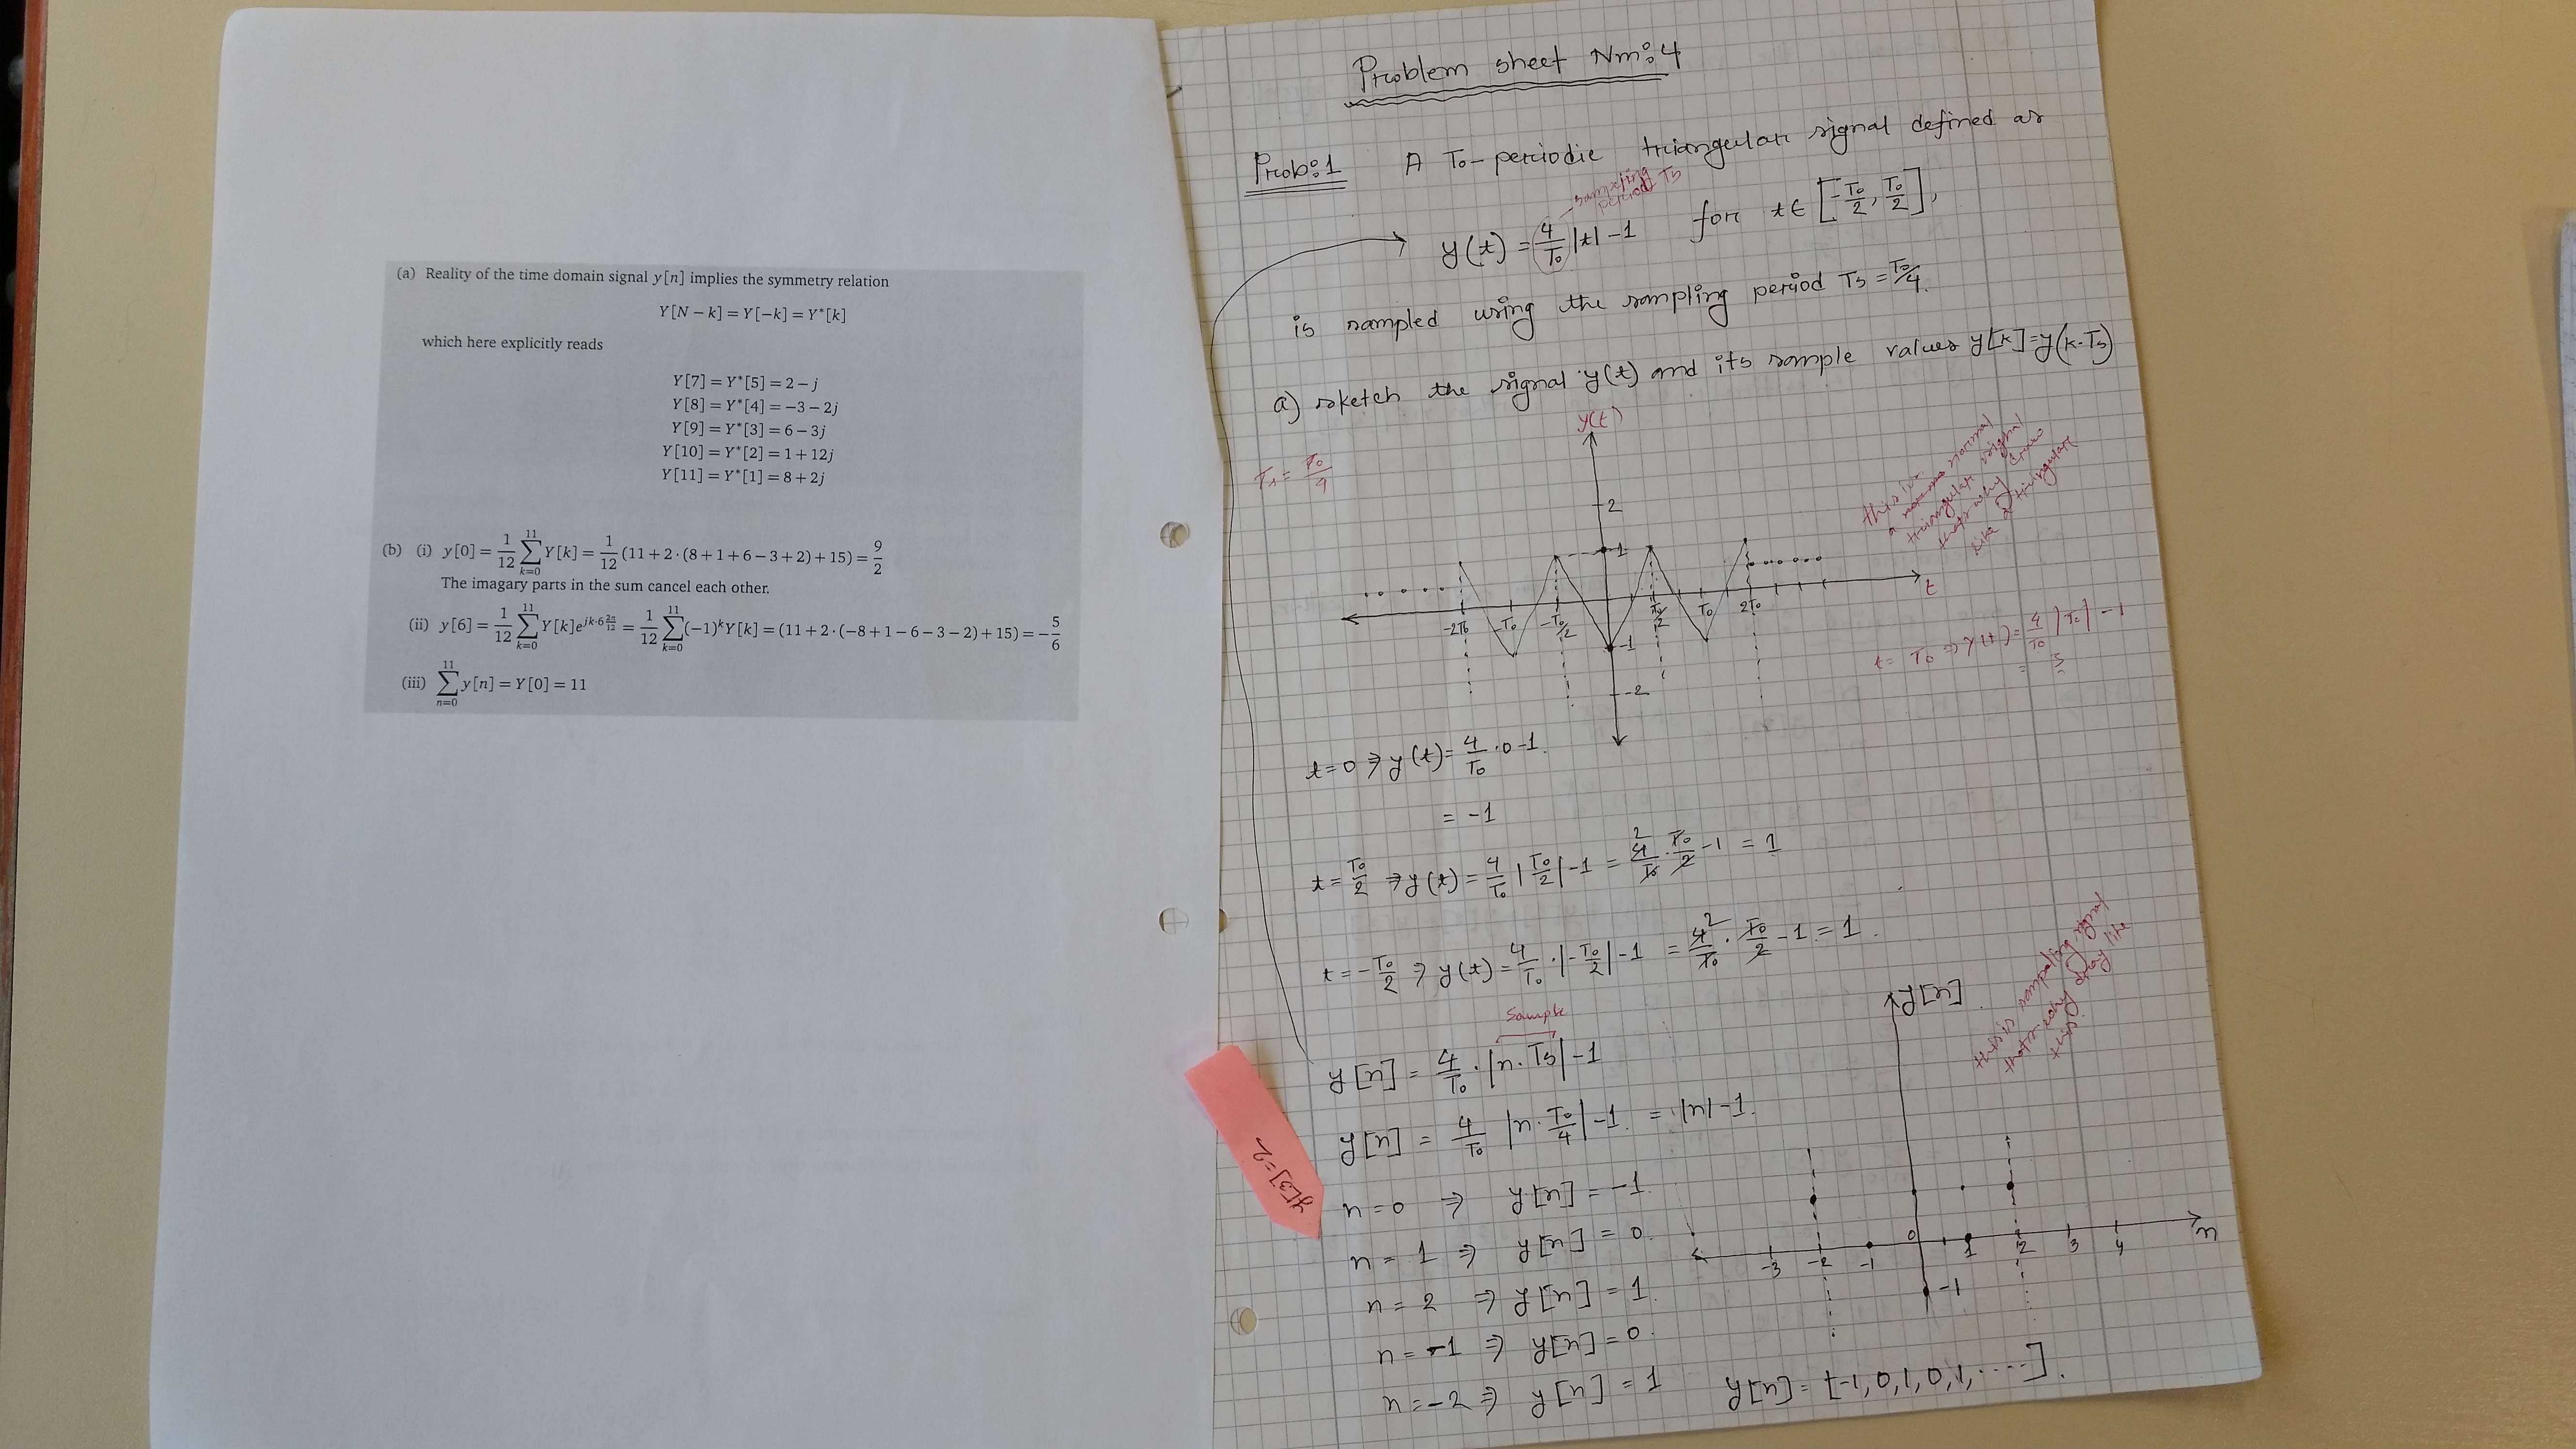 (a) Reality of the time domain signal y[n] implies the symmetry relation
Y[N − k] = Y[−k] = Y*[k]
which here explicitly reads
Y[7] = Y*[5] = 2 − j
Y[8] = Y*[4] = −3 − 2j
Y[9] = Y*[3] = 6 − 3j
Y[10] = Y*[2] = 1 + 12j
Y[11] = Y*[1] = 8 + 2j
(b) (i) y[0] = 1/12 ∑_{k=0}^{11} Y[k] = 1/12 (11 + 2·(8 + 1 + 6 − 3 + 2) + 15) = 9/2
The imagary parts in the sum cancel each other.
(ii) y[6] = 1/12 ∑_{k=0}^{11} Y[k]e^{jk·6 2π/12} = 1/12 ∑_{k=0}^{11} (−1)^k Y[k] = (11 + 2·(−8 + 1 − 6 − 3 − 2) + 15) = −5/6
(iii) ∑_{n=0}^{11} y[n] = Y[0] = 11
Problem sheet Nm: 4
Prob:1 A T₀-periodic triangular signal defined as
sampling
period Ts
y(t) = 4/T₀ |t| − 1 for t ∈ [−T₀/2, T₀/2],
is sampled using the sampling period Ts = T₀/4.
a) sketch the signal y(t) and its sample values y[k]=y(k·Ts)
y(t)
Ts = T₀/4
this is
a normal
triangular signal
that's why draw
like a triangular
2
1
t
-2T₀ -T₀ -T₀/2 T₀/2 T₀ 2T₀
-1
-2
t = T₀ ⇒ y(t) = 4/T₀ |T₀| − 1
= 3
t=0 ⇒ y(t) = 4/T₀ · 0 − 1.
= −1
t = T₀/2 ⇒ y(t) = 4/T₀ |T₀/2| − 1 = 4/T₀ · T₀/2 − 1 = 1
2
t = −T₀/2 ⇒ y(t) = 4/T₀ · |−T₀/2| − 1 = 4/T₀ · T₀/2 − 1 = 1.
2
Sample
y[n] = 4/T₀ · |n·Ts| − 1
y[n] = 4/T₀ |n · T₀/4| − 1. = |n| − 1.
n = 0 ⇒ y[n] = −1.
n = 1 ⇒ y[n] = 0.
n = 2 ⇒ y[n] = 1.
n = −1 ⇒ y[n] = 0.
n = −2 ⇒ y[n] = 1
y[n] = [−1, 0, 1, 0, 1, ....].
y[n]
this is sampling signal
that's why draw like
this.
-3 -2 -1 0 1 2 3 4 n
-1
y[3]=2